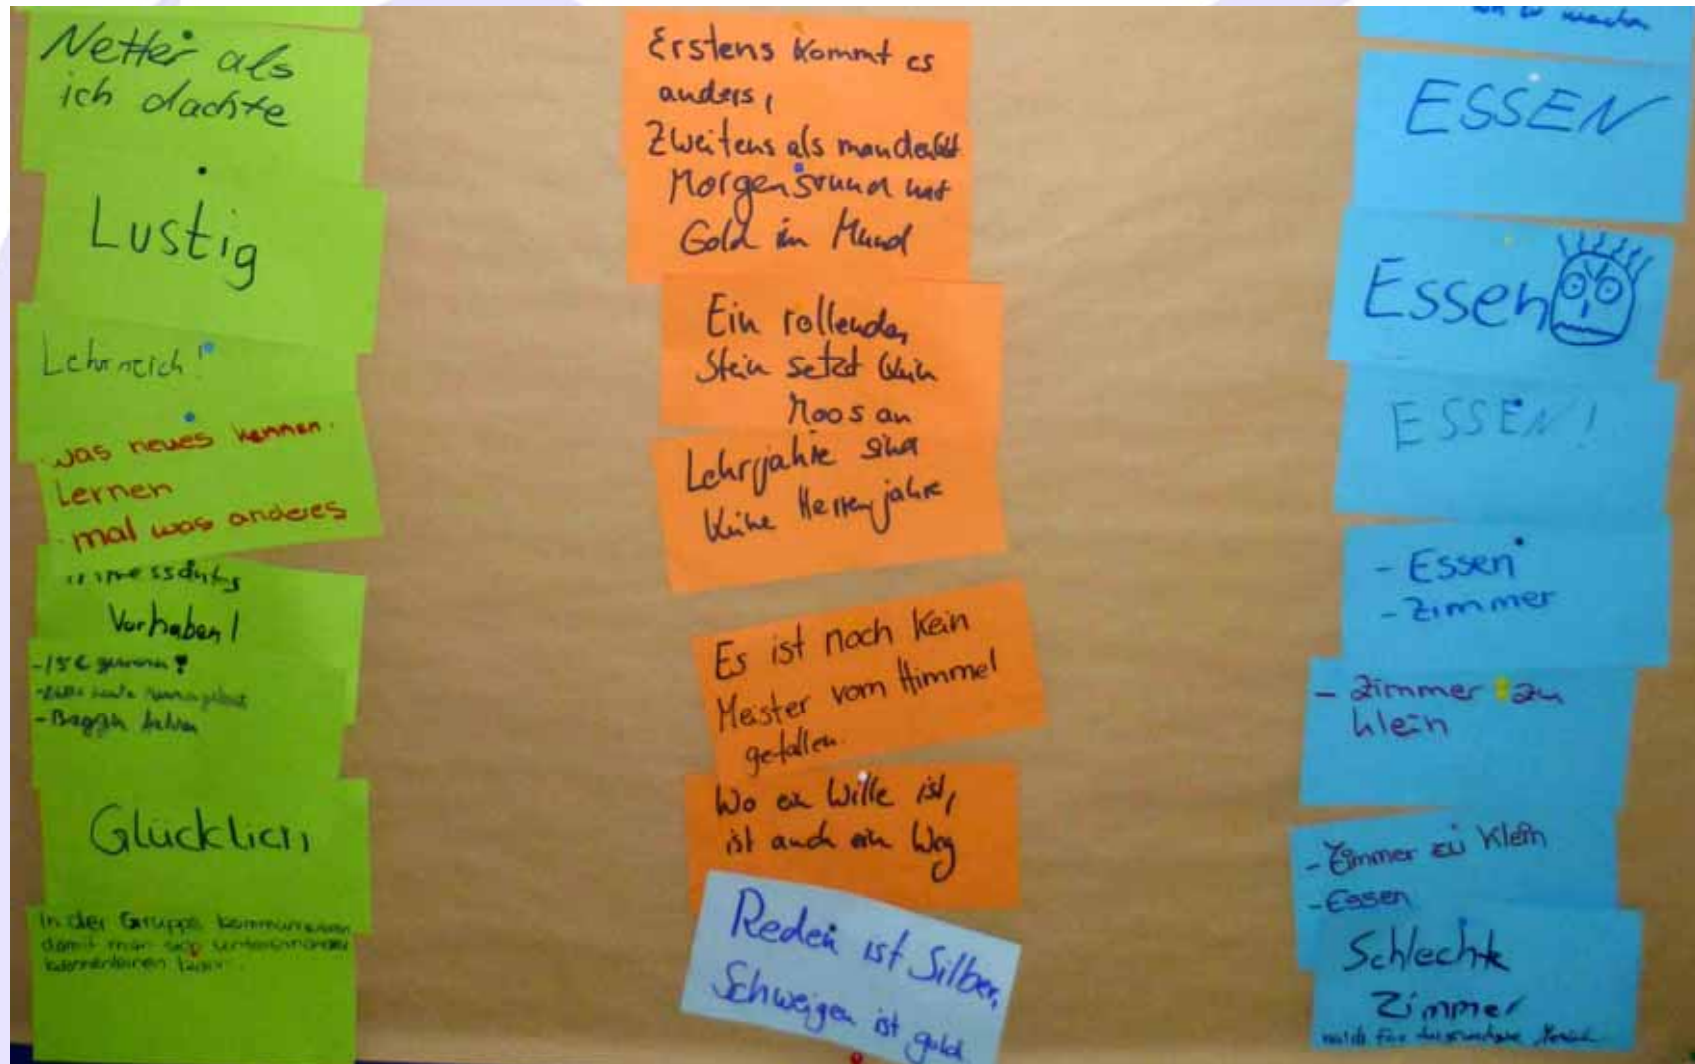 Netter als
ich dachte
Lustig
Lehrreich!
was neues kennen
lernen
mal was anderes
Vorhaben!
-15€
- Baggern fahren
Glücklich
In der Gruppe kommunizieren
damit man sich untereinander
kennenlernen kann.
Erstens kommt es
anders,
Zweitens als man denkt
Morgenstund hat
Gold im Mund
Ein rollender
Stein setzt kein
Moos an
Lehrjahre sind
keine Herrenjahre
Es ist noch kein
Meister vom Himmel
gefallen.
Wo ein Wille ist,
ist auch ein Weg
Reden ist Silber,
Schweigen ist gold
ESSEN
Essen
ESSEN!
- Essen
- Zimmer
- Zimmer zu
klein
- Zimmer zu klein
- Essen
Schlechte
Zimmer
nichts für